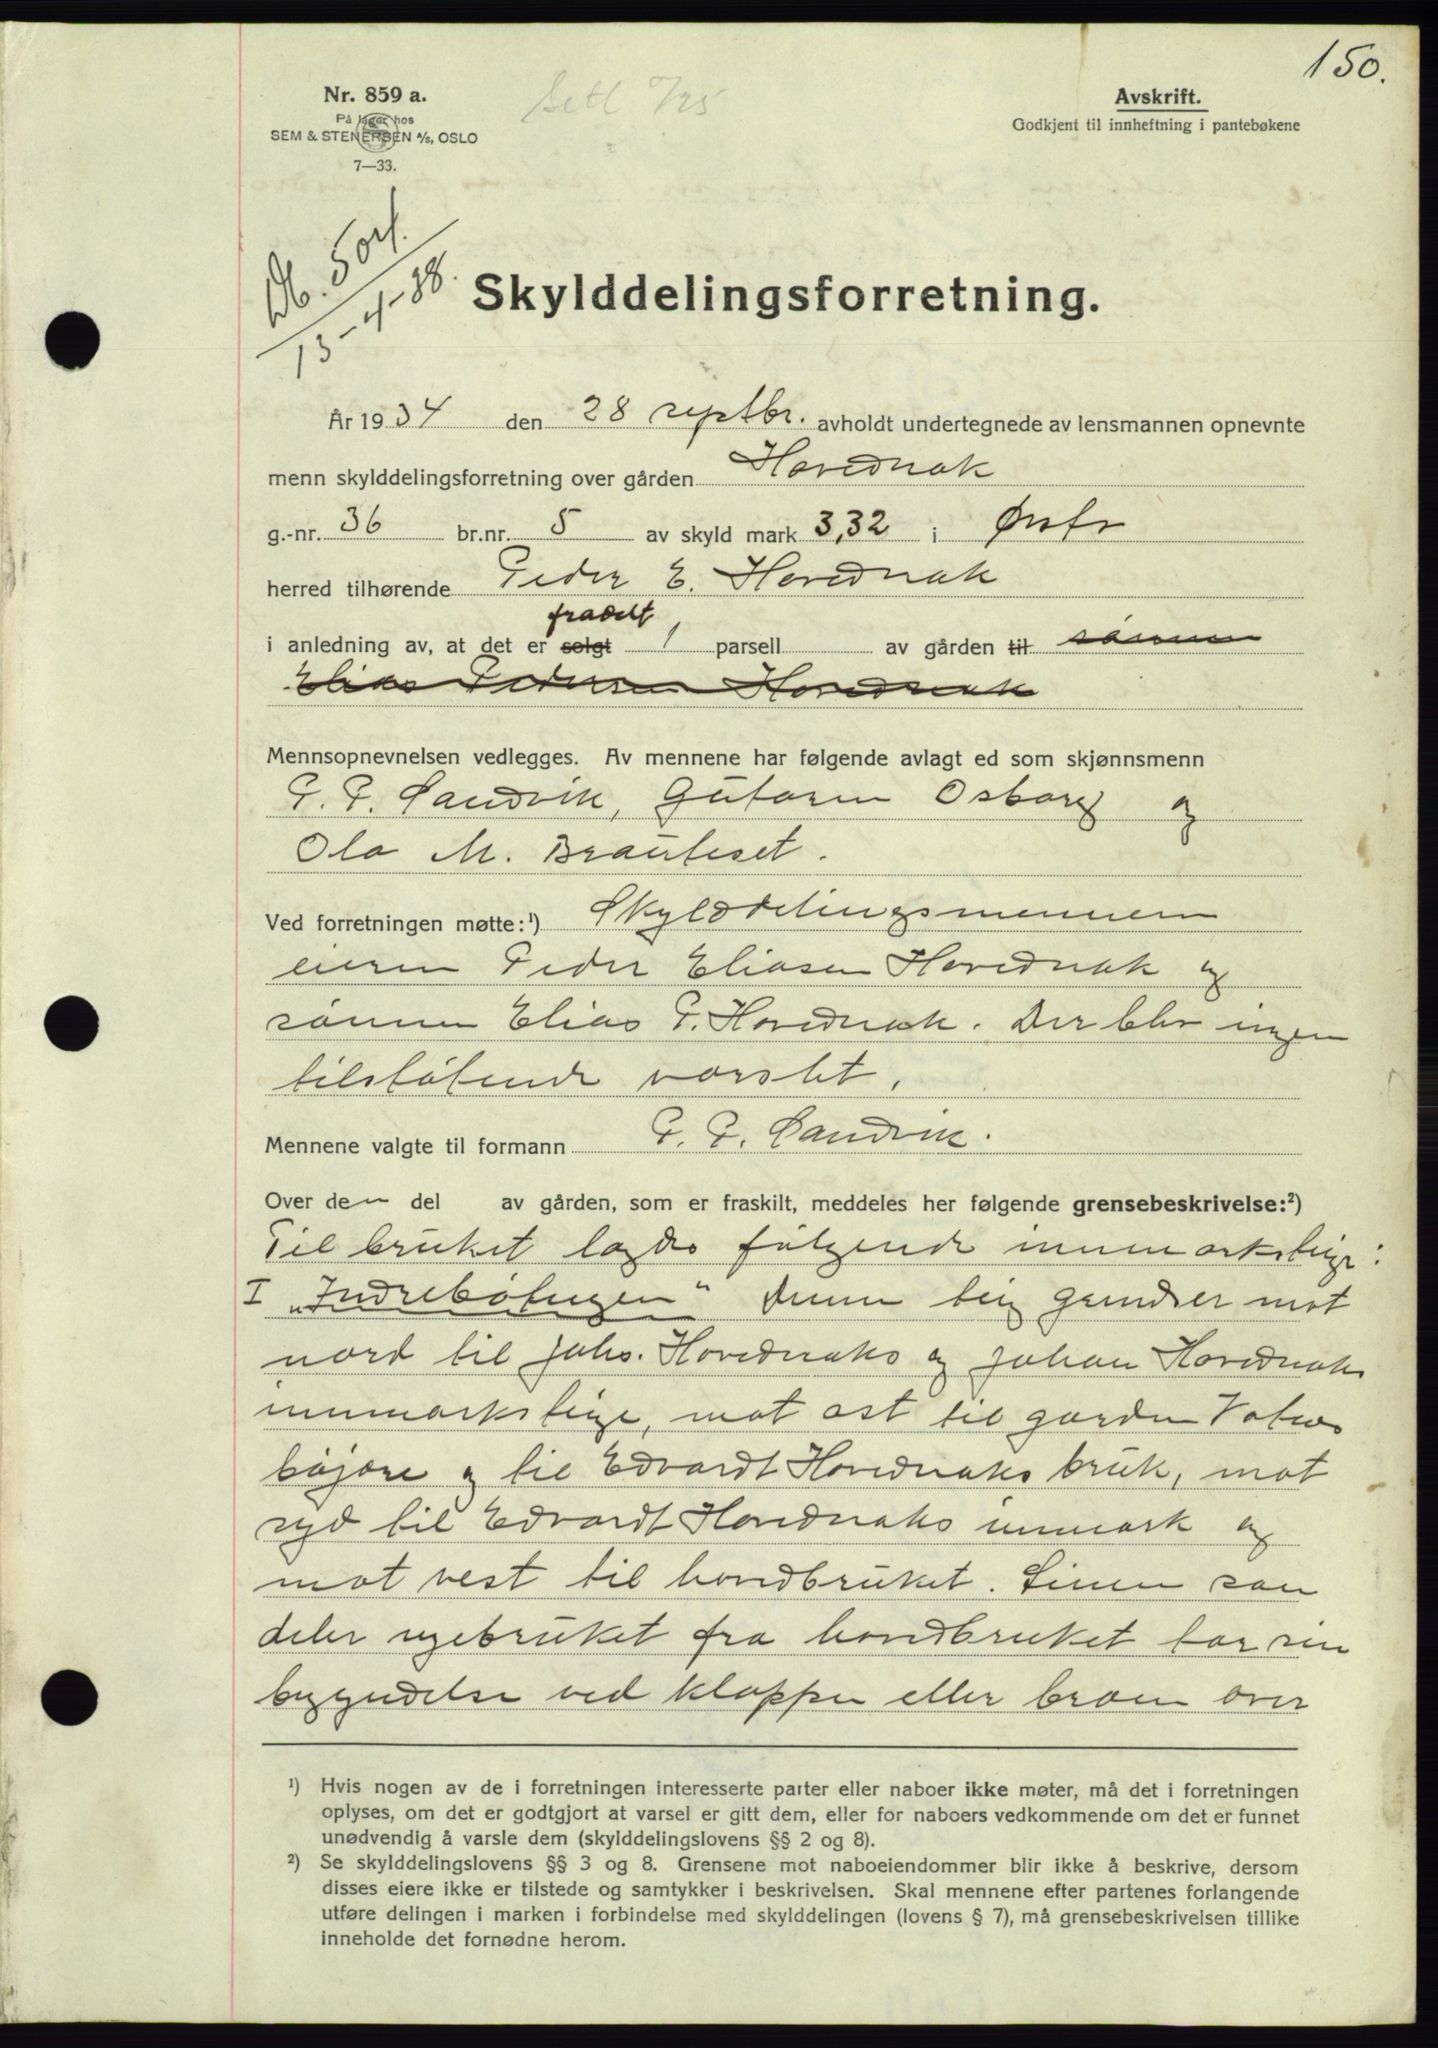 150.
Nr. 859 a.
På lager hos
SEM & STENERSEN A/S, OSLO
7—33.
Avskrift.
Godkjent til innheftning i pantebøkene
13-4-38.
Skylddelingsforretning.
År 1934 den 28 septbr. avholdt undertegnede av lensmannen opnevnte
menn skylddelingsforretning over gården Hovednak
g.-nr. 36 br.nr. 5 av skyld mark 3,32 i Ørsta
herred tilhørende Peder E. Hovednak
fradelt
i anledning av, at det er solgt 1 parsell av gården til sønnen
Elias Pedersen Hovednak
Mennsopnevnelsen vedlegges. Av mennene har følgende avlagt ed som skjønnsmenn
P. P. Sandvik, Guttorm Osborg og
Ola M. Brauteset.
Ved forretningen møtte:¹) Skylddelingsmennene
eieren Peder Eliasen Hovednak og
sønnen Elias P. Hovednak. Der blev ingen
tilstøtende varslet.
Mennene valgte til formann P. P. Sandvik.
Over den del av gården, som er fraskilt, meddeles her følgende grensebeskrivelse:²)
Til bruket lagdes følgende innmarksteige:
I „Indrebøteigen" Denne teig grendser mot
nord til Johs. Hovednaks og Johan Hovednaks
innmarksteige, mot øst til garden Vatne
og til Edvardt Hovednaks bruk, mot
syd til Edvardt Hovednaks innmark og
mot vest til hovedbruket. Linen som
deler nyebruket fra hovedbruket tar sin
begyndelse ved kloppen eller broen over
¹) Hvis nogen av de i forretningen interesserte parter eller naboer ikke møter, må det i forretningen
oplyses, om det er godtgjort at varsel er gitt dem, eller for naboers vedkommende om det er funnet
unødvendig å varsle dem (skylddelingslovens §§ 2 og 8).
²) Se skylddelingslovens §§ 3 og 8. Grensene mot naboeiendommer blir ikke å beskrive, dersom
disses eiere ikke er tilstede og samtykker i beskrivelsen. Skal mennene efter partenes forlangende
utføre delingen i marken i forbindelse med skylddelingen (lovens § 7), må grensebeskrivelsen tillike
inneholde det fornødne herom.